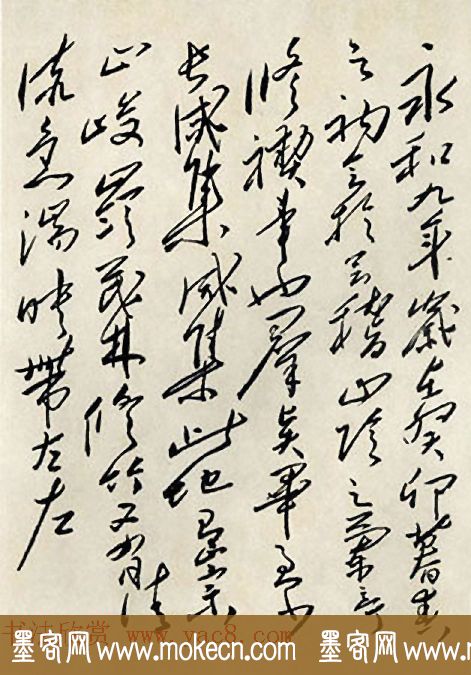 永和九年歲在癸卯暮春
之初會於會稽山陰之蘭亭
修禊事也群賢畢至少
長咸集咸集此地是崇
山峻嶺茂林修竹又有清
流急湍映帶左左
书法欣赏 www.yac8.com
墨客网 www.mokecn.com 墨客网 www.mokecn.com